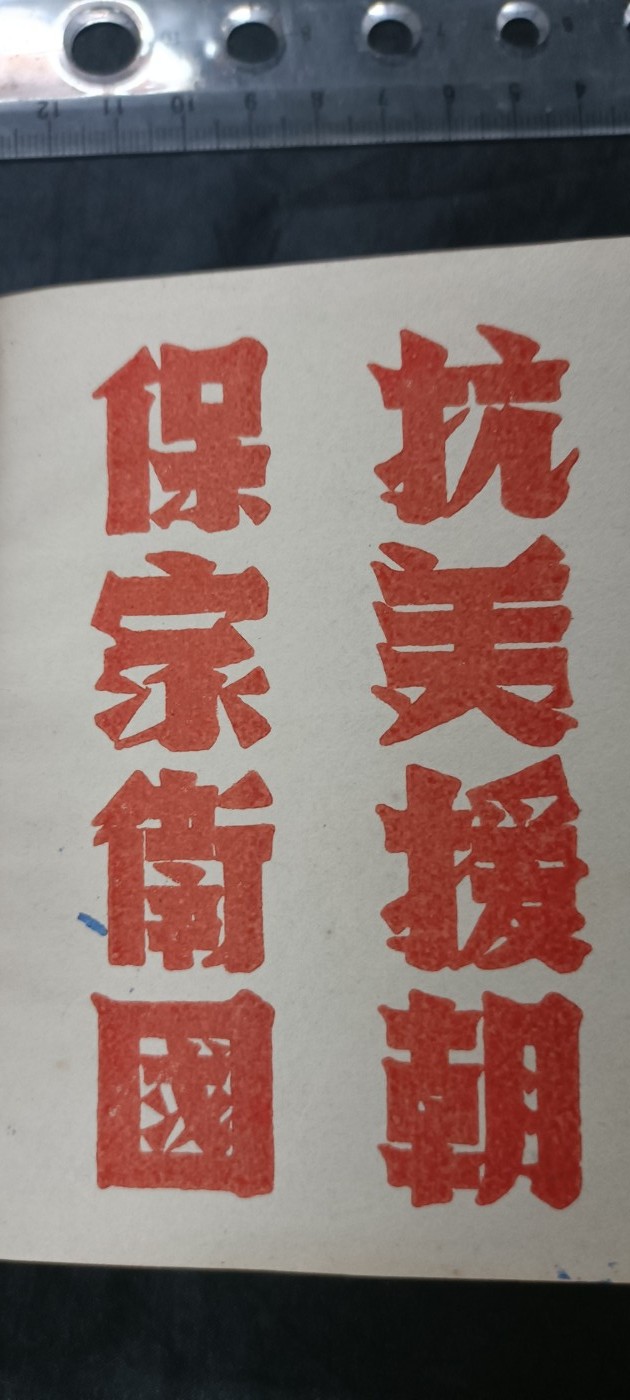 抗美援朝
保家衛國
12 11 10 9 8 7 6 5 4